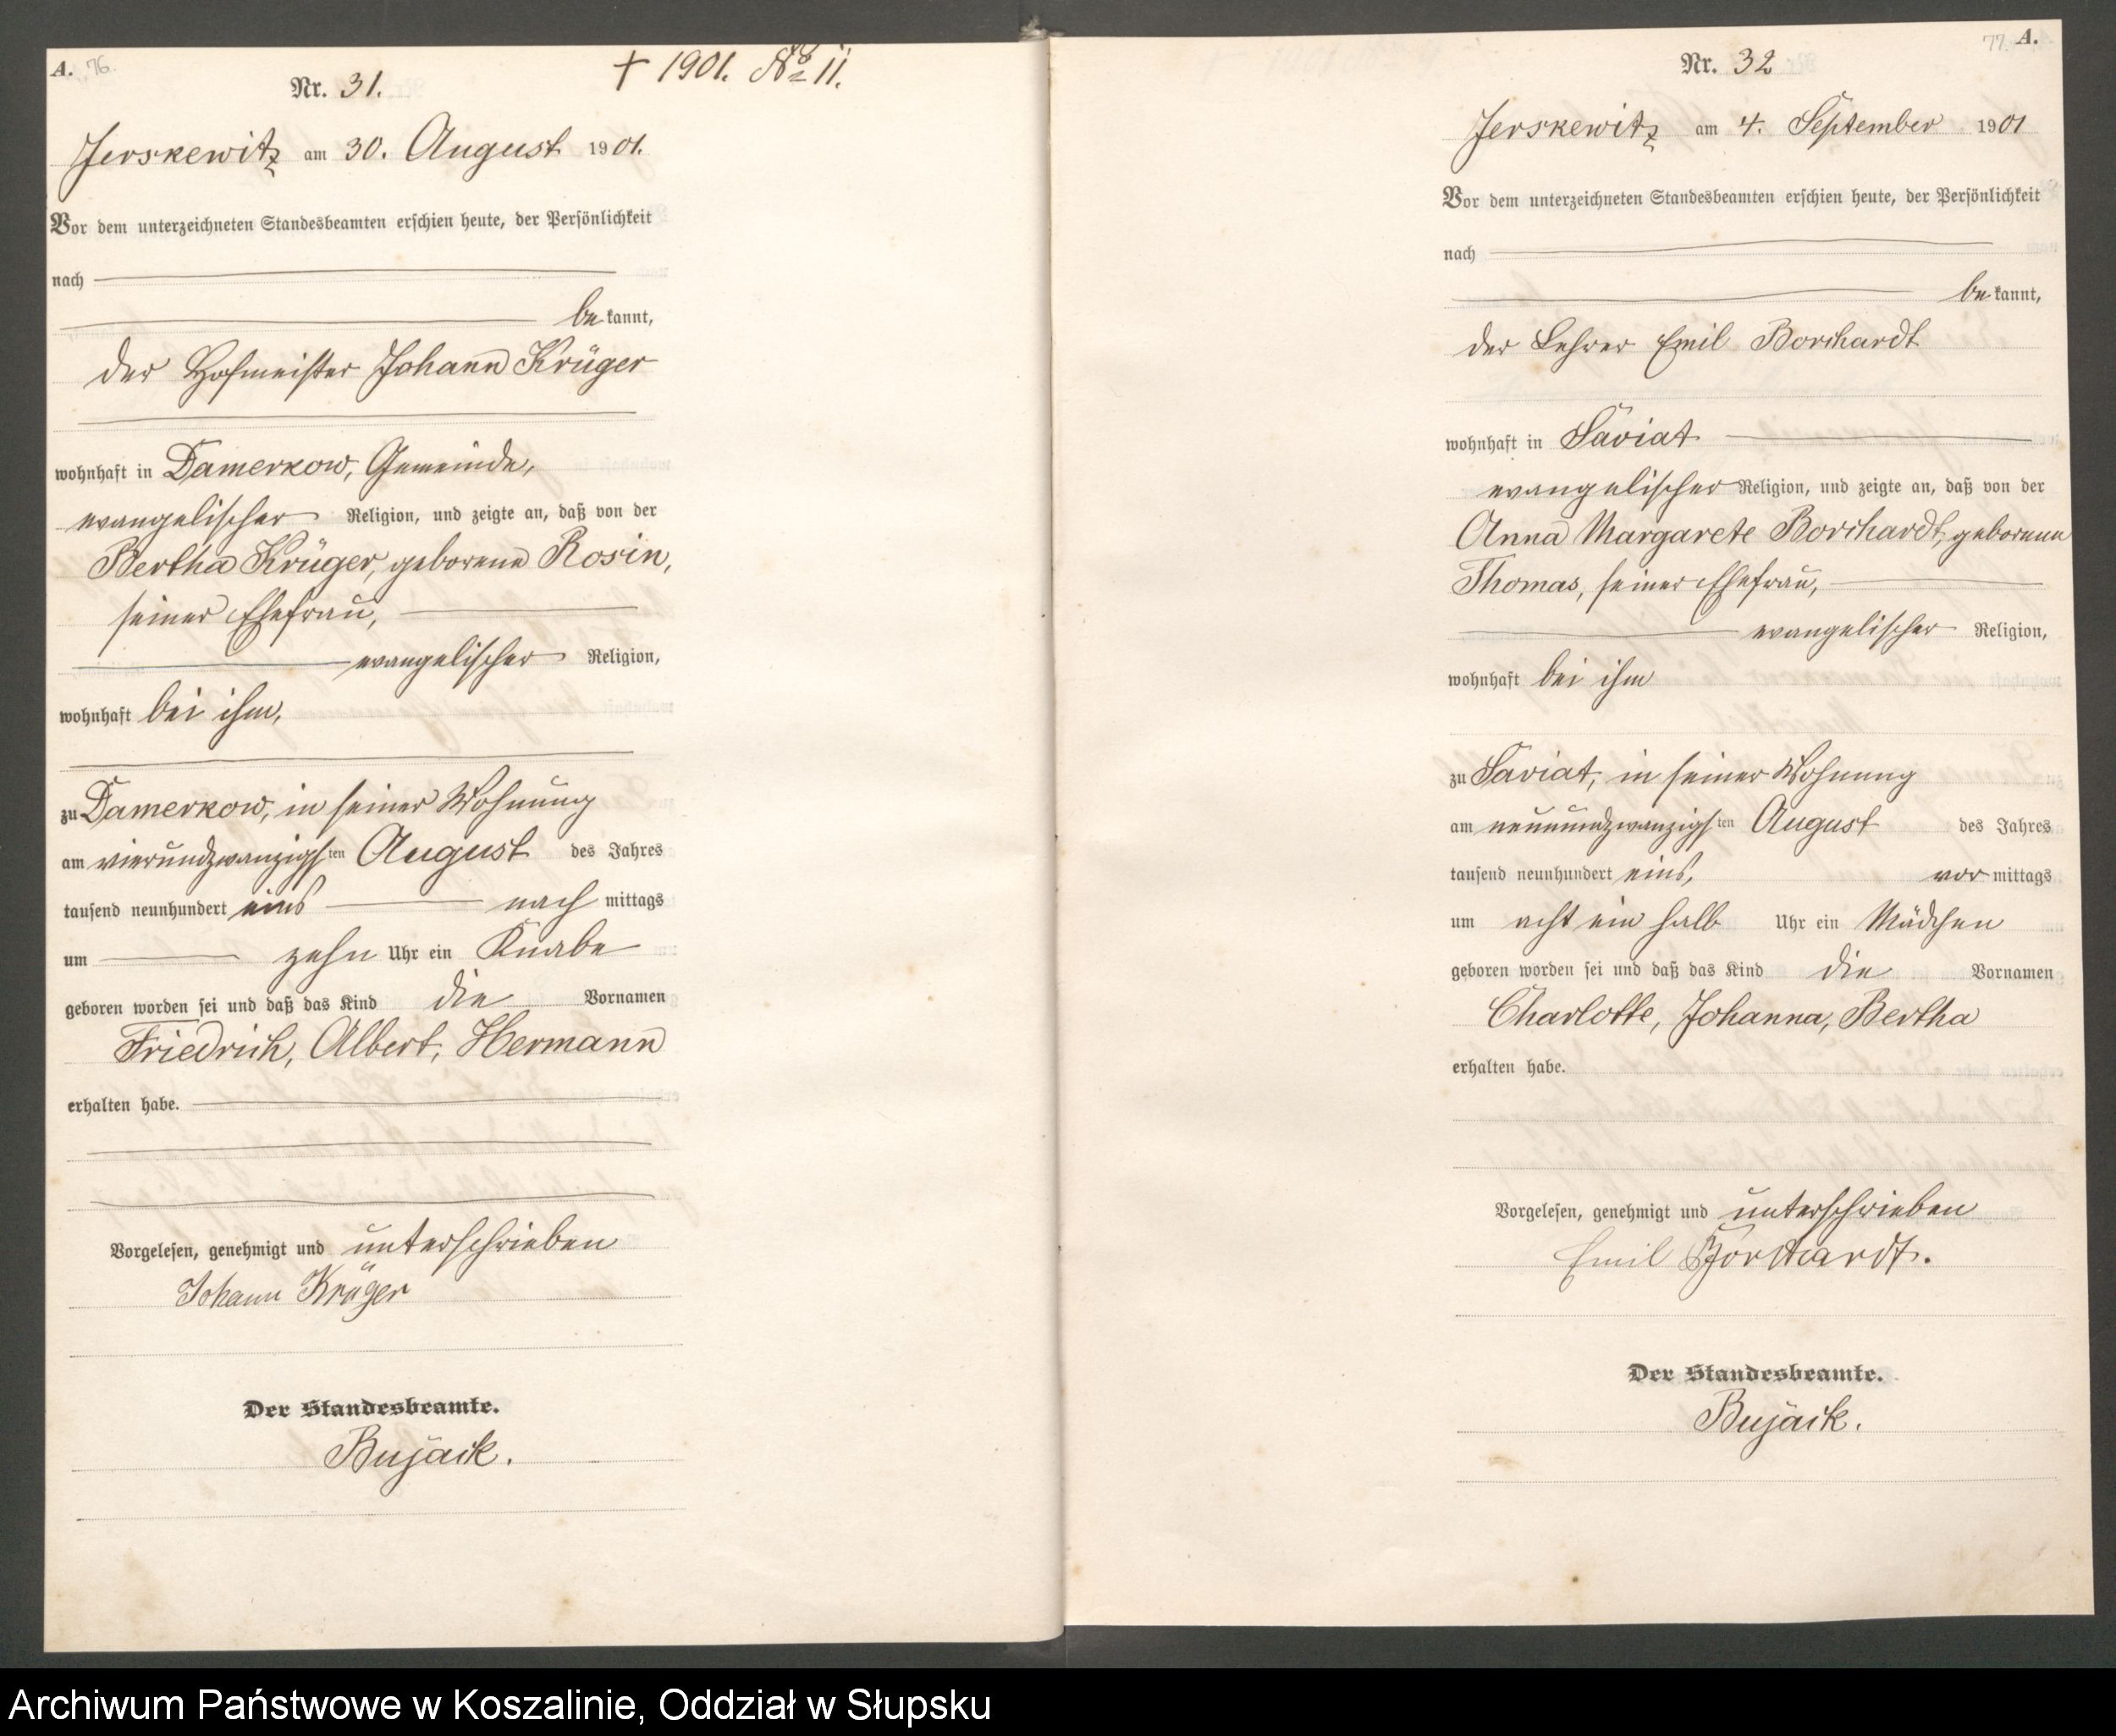 A. 76.
Nr. 31.
† 1901. No 11.
Jerskewitz am 30. August 1901.
Vor dem unterzeichneten Standesbeamten erschien heute, der Persönlichkeit
nach
be kannt,
der Hofmeister Johann Krüger
wohnhaft in Damerkow, Gemeinde,
evangelischer Religion, und zeigte an, daß von der
Bertha Krüger, geborene Rosin,
seiner Ehefrau,
evangelischer Religion,
wohnhaft bei ihm,
zu Damerkow, in seiner Wohnung
am vierundzwanzigsten August des Jahres
tausend neunhundert eins nach mittags
um zehn Uhr ein Knabe
geboren worden sei und daß das Kind die Vornamen
Friedrich, Albert, Hermann
erhalten habe.
Vorgelesen, genehmigt und unterschrieben
Johann Krüger
Der Standesbeamte.
Bujack.
77. A.
Nr. 32
Jerskewitz am 4. September 1901
Vor dem unterzeichneten Standesbeamten erschien heute, der Persönlichkeit
nach
be kannt,
der Lehrer Emil Borchardt
wohnhaft in Saviat
evangelischer Religion, und zeigte an, daß von der
Anna Margarete Borchardt, geborene
Thomas, seiner Ehefrau,
evangelischer Religion,
wohnhaft bei ihm
zu Saviat, in seiner Wohnung
am neunundzwanzigsten August des Jahres
tausend neunhundert eins, vor mittags
um acht ein halb Uhr ein Mädchen
geboren worden sei und daß das Kind die Vornamen
Charlotte, Johanna, Bertha
erhalten habe.
Vorgelesen, genehmigt und unterschrieben
Emil Borchardt.
Der Standesbeamte.
Bujack.
Archiwum Państwowe w Koszalinie, Oddział w Słupsku